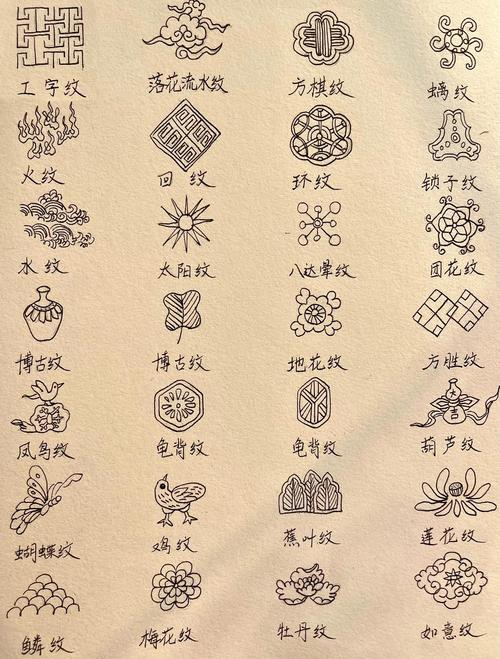 工字纹 落花流水纹 方棋纹 螭纹
火纹 回纹 环纹 锁子纹
水纹 太阳纹 八达晕纹 团花纹
博古纹 博古纹 地花纹 方胜纹
凤鸟纹 龟背纹 龟背纹 大吉 葫芦纹
蝴蝶纹 鸡纹 蕉叶纹 莲花纹
鳞纹 梅花纹 牡丹纹 如意纹